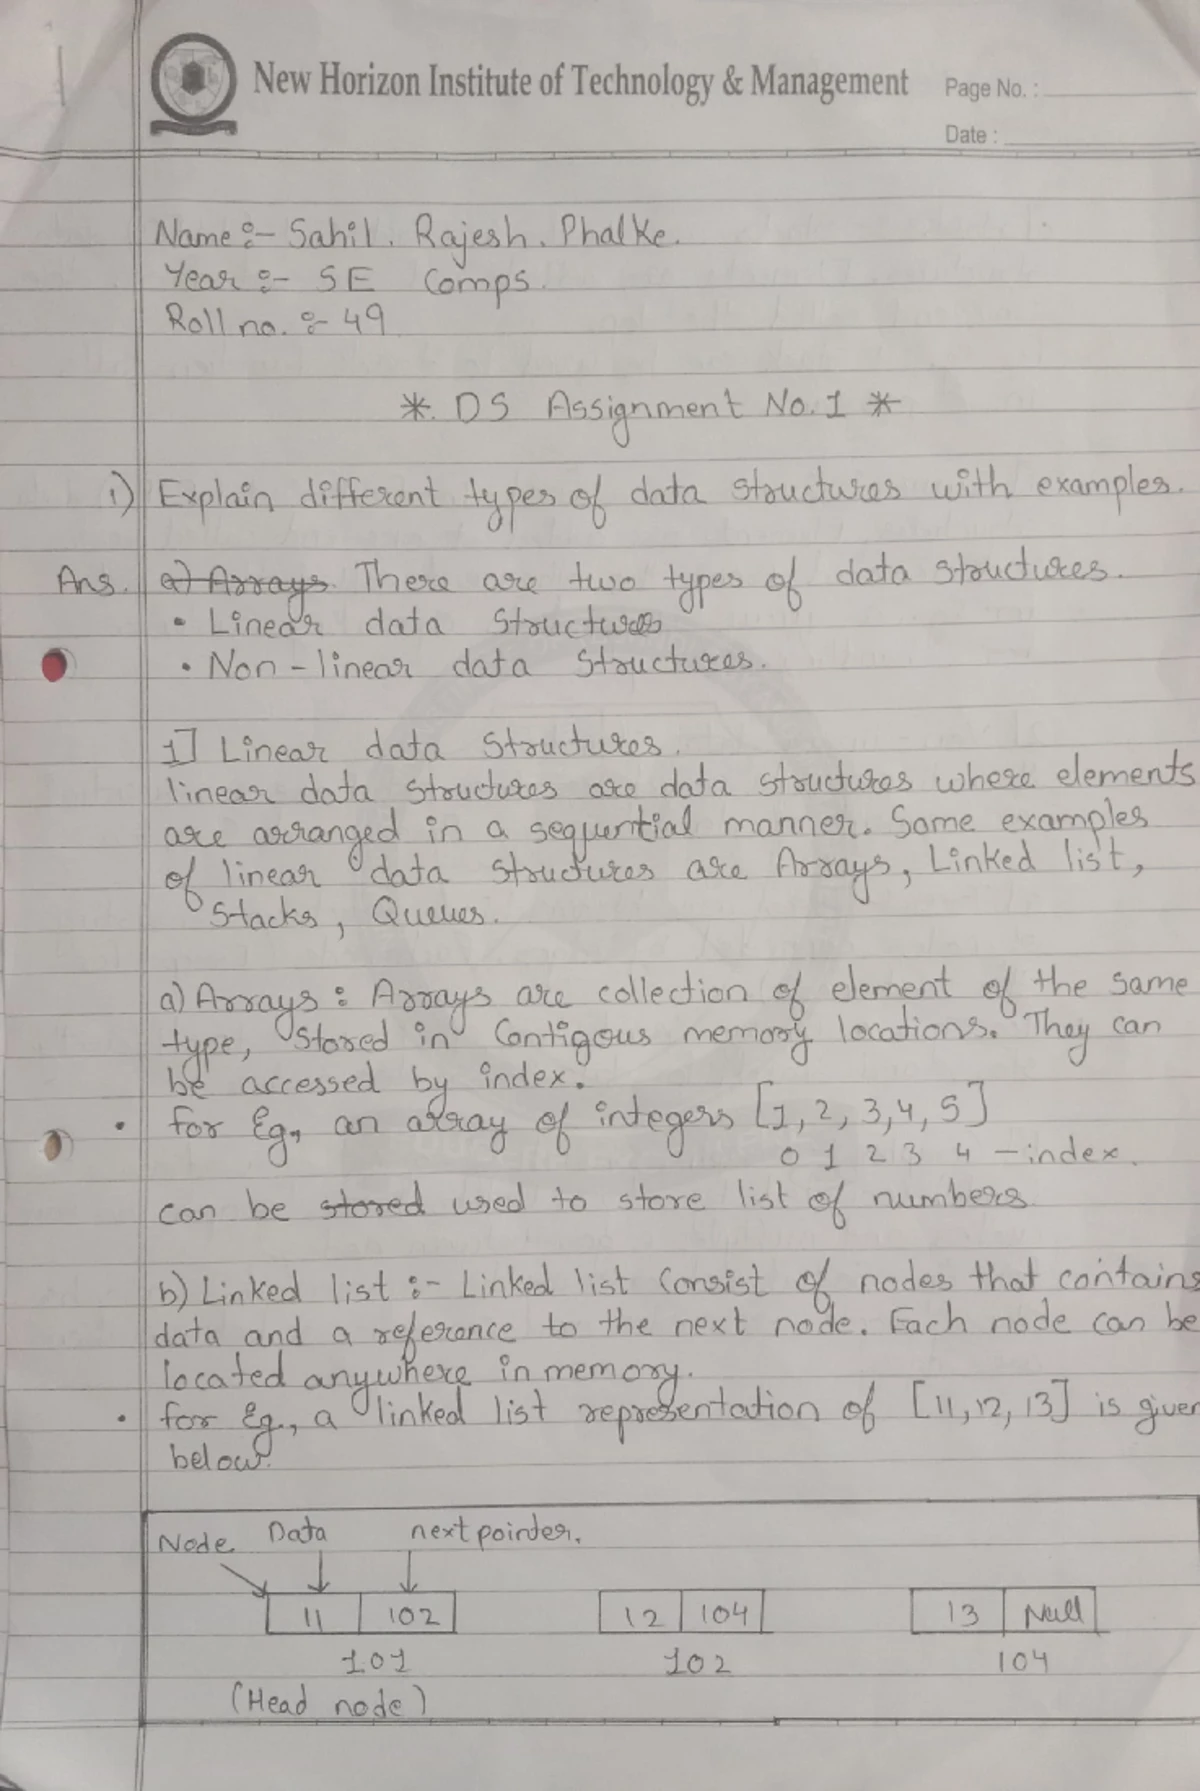 New Horizon Institute of Technology & Management
Page No. :
Date :
Name :- Sahil. Rajesh. Phalke.
Year :- SE Comps.
Roll no. :- 49
*. DS Assignment No. 1 *
1) Explain different types of data structures with examples.
Ans. a) Arrays. There are two types of data structures.
• Linear data structures
• Non-linear data structures.
1] Linear data structures.
linear data structures are data structures where elements
are arranged in a sequential manner. Some examples
of linear data structures are Arrays, Linked list,
Stacks, Queues.
a) Arrays : Arrays are collection of element of the same
type, stored in Contigous memory locations. They can
be accessed by index.
• for Eg., an array of integers [1, 2, 3, 4, 5]
0 1 2 3 4 - index.
can be stored used to store list of numbers
b) Linked list :- Linked list Consist of nodes that contains
data and a reference to the next node. Each node can be
located anywhere in memory.
• for Eg., a linked list representation of [11, 12, 13] is given
below.
Node Data next pointer.
11 102 12 104 13 Null
101 102 104
(Head node)